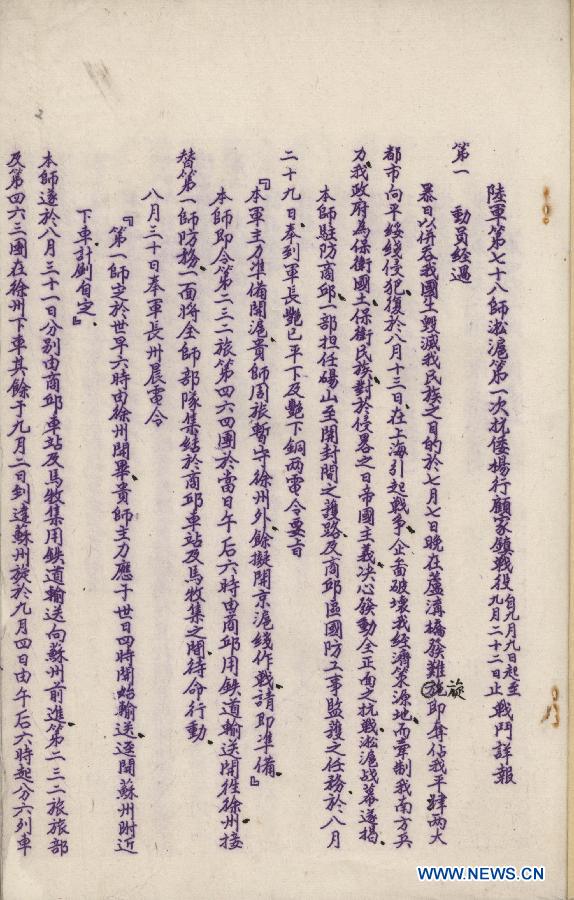 陸軍第七十八師淞滬第一次抗倭楊行顧家鎮戰役自九月九日起至九月二十二日止戰鬥詳報
第一　動員經過
暴日以併吞我國土毀滅我民族之目的於七月七日晚在蘆溝橋發難旋即奪佔我平肆兩大
都市向平綏綫侵犯復於八月十三日在上海引起戰爭企啚破壞我經濟策源地而牽制我南方兵
力我政府為保衛國土保衛民族對於侵畧之日帝國主義決心發動全正面之抗戰淞滬战幕遂揭
本師駐防商邱一部担任碭山至開封間之護路及商邱區國防工事監護之任務於八月
二十九日奉到軍長艷已平下及艷下銅兩電令要旨
『本軍主力準備開滬貴師周旅暫守徐州外餘擬開京滬綫作戰請即準備』
本師即令第二三二旅第四六四團於當日午后六時由商邱用鉄道輸送開徃徐州接
替第一師防務一面將全師部隊集結於商邱車站及馬牧集之間待命行動
八月三十日奉軍長卅晨電令
『第一師定於世早六時由徐州開畢貴師主力應于世日四時開始輸送逕開蘇州附近
下車計劃自定』
本師遂於八月三十一日分别由商邱車站及馬牧集用鉄道輸送向蘇州前進第二三二旅旅部
及第四六三團在徐州下車其餘于九月二日到達蘇州旋於九月四日由午后六時起分六列車
WWW.NEWS.CN